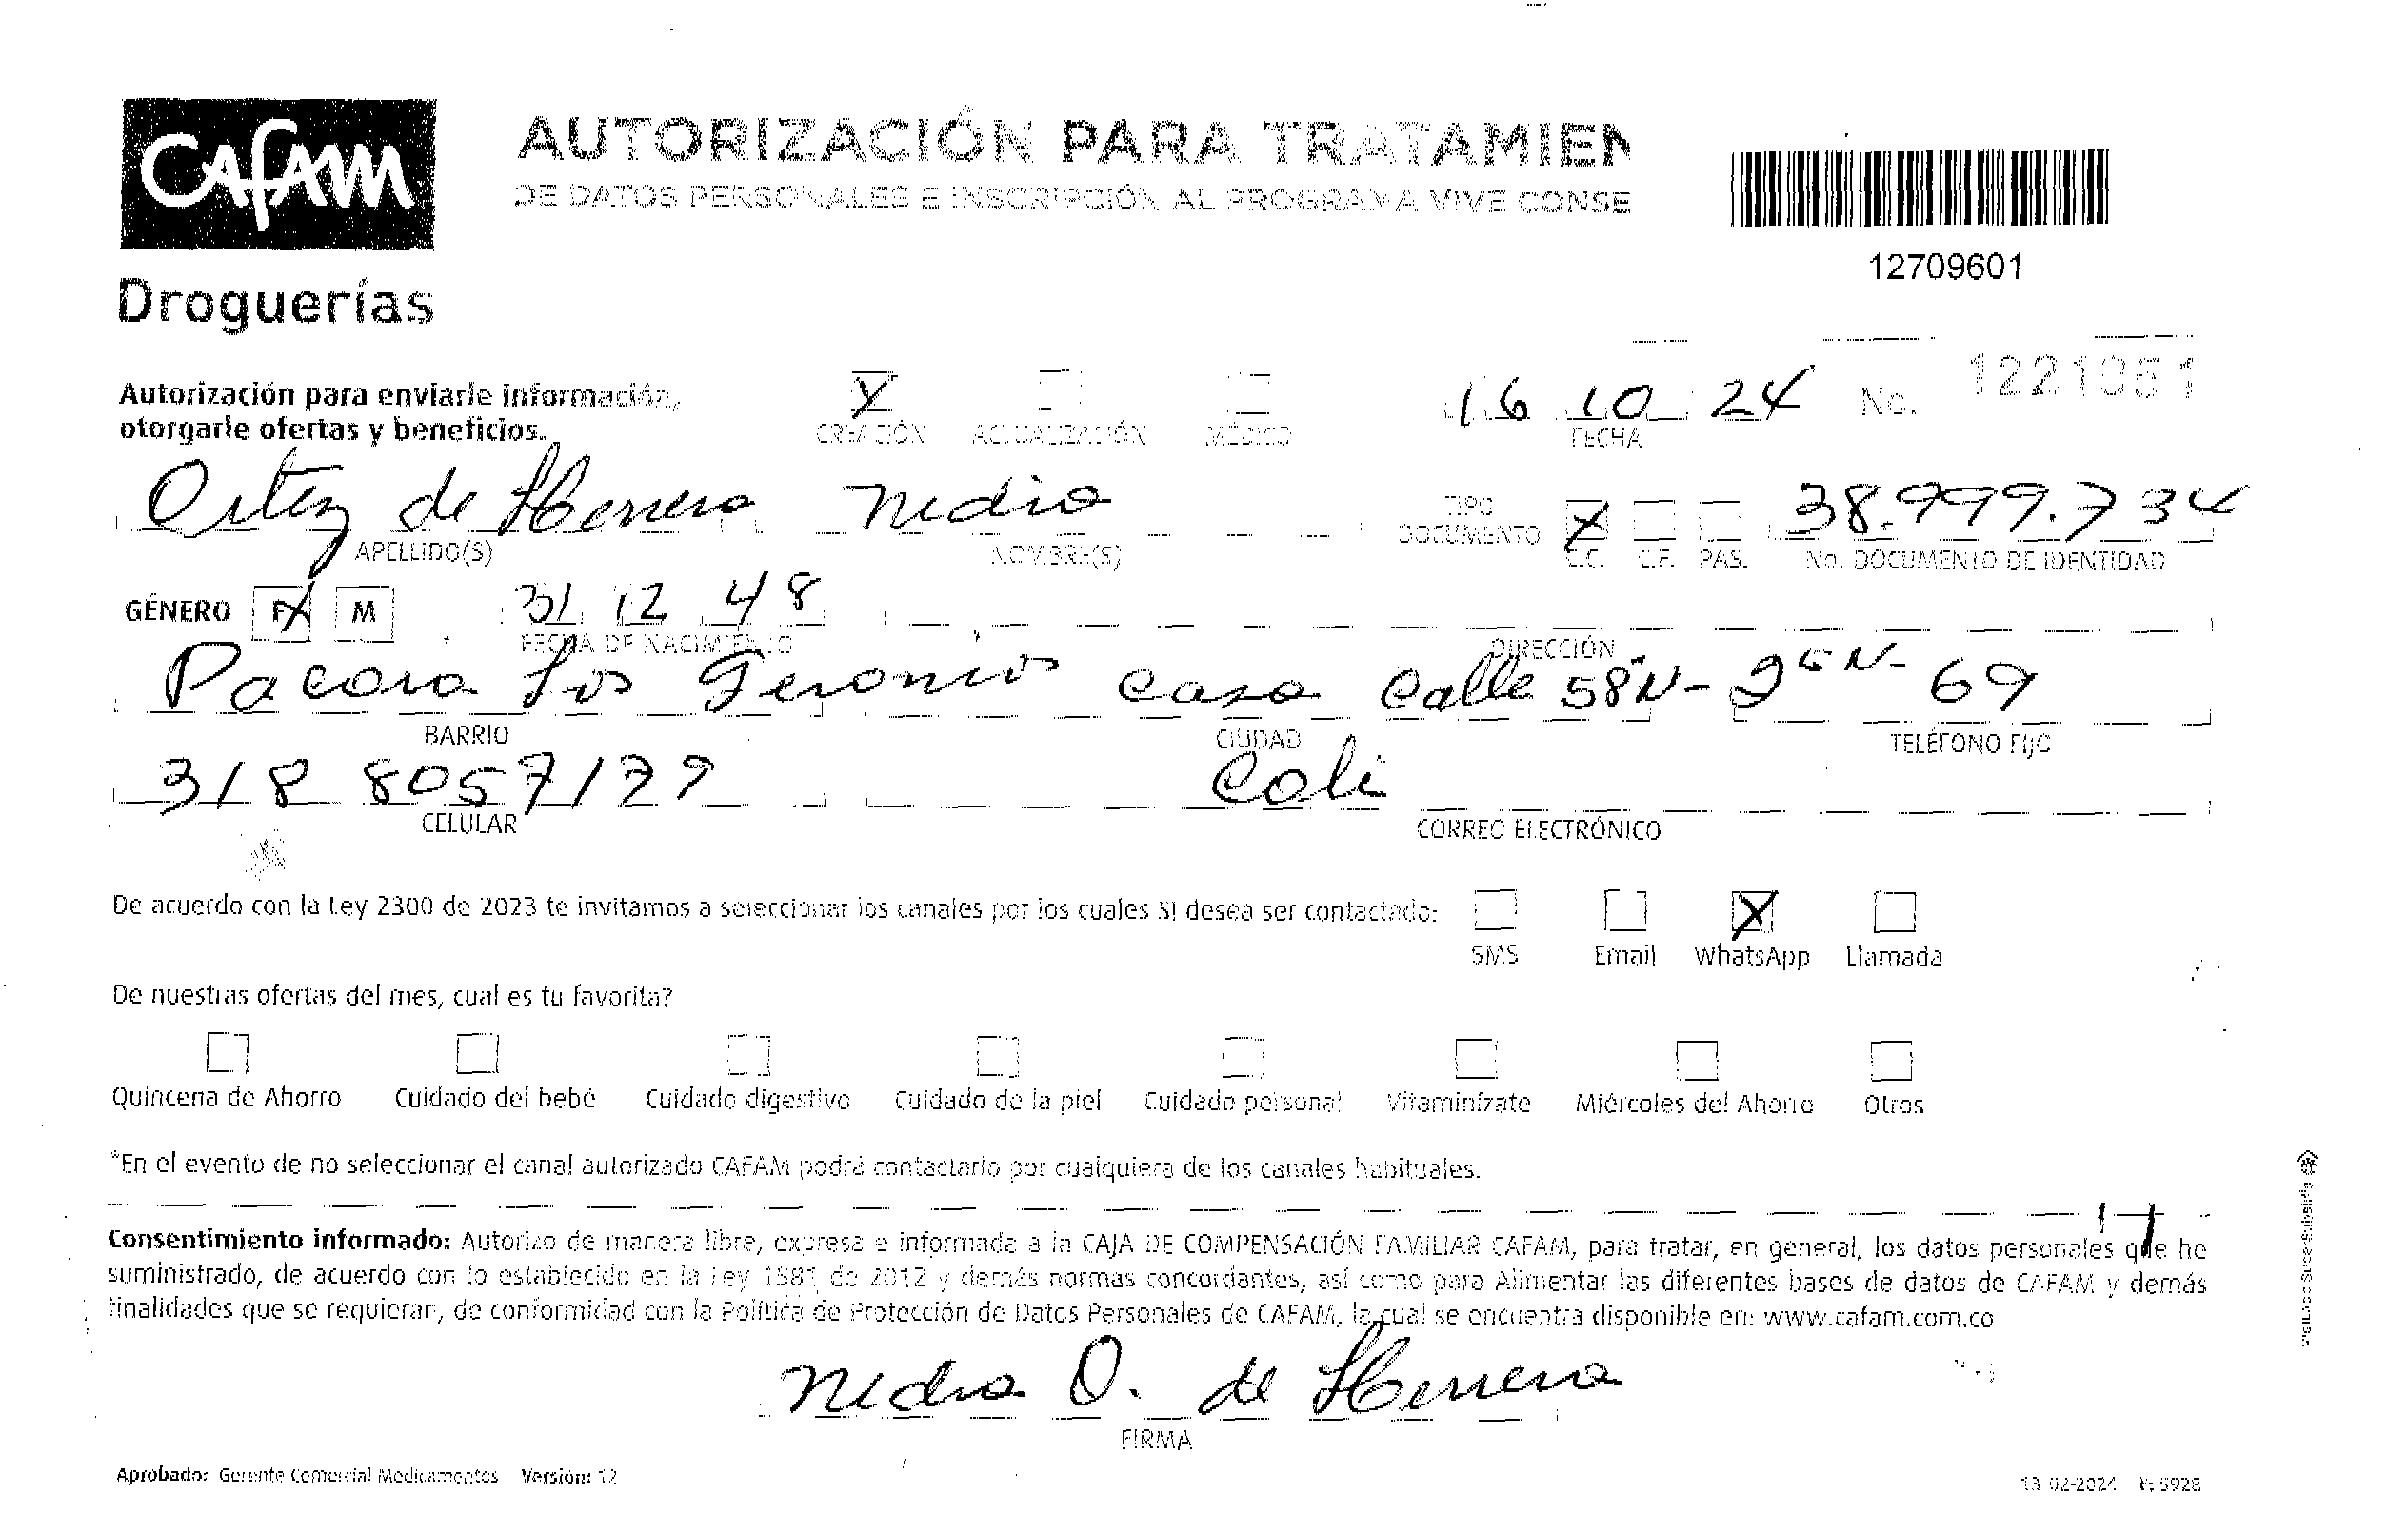 CAFAM
AUTORIZACIÓN PARA TRATAMIEN
DE DATOS PERSONALES E INSCRIPCIÓN AL PROGRAMA VIVE CONSE
12709601
Droguerías
Autorización para enviarle información,
otorgarle ofertas y beneficios.
X
CREACIÓN ACTUALIZACIÓN MÉDICO
16 10 24
FECHA
No. 1221051
Ortiz de Herrera Nidia
APELLIDO(S) NOMBRE(S)
TIPO
DOCUMENTO
X
C.C. C.E. PAS.
38.999.734
No. DOCUMENTO DE IDENTIDAD
GÉNERO F X M
31 12 48
FECHA DE NACIMIENTO
DIRECCIÓN
Pacara Los Geronimos casa Calle 58N - 2 N - 69
BARRIO CIUDAD TELÉFONO FIJO
318 8057177 Cali
CELULAR CORREO ELECTRÓNICO
De acuerdo con la Ley 2300 de 2023 te invitamos a seleccionar los canales por los cuales SI desea ser contactado:
X
SMS Email WhatsApp Llamada
De nuestras ofertas del mes, cual es tu favorita?
Quincena de Ahorro Cuidado del bebé Cuidado digestivo Cuidado de la piel Cuidado personal Vitaminízate Miércoles del Ahorro Otros
*En el evento de no seleccionar el canal autorizado CAFAM podrá contactarlo por cualquiera de los canales habituales.
Consentimiento informado: Autorizo de manera libre, expresa e informada a la CAJA DE COMPENSACIÓN FAMILIAR CAFAM, para tratar, en general, los datos personales que he
suministrado, de acuerdo con lo establecido en la Ley 1581 de 2012 y demás normas concordantes, así como para Alimentar las diferentes bases de datos de CAFAM y demás
finalidades que se requieran, de conformidad con la Política de Protección de Datos Personales de CAFAM, la cual se encuentra disponible en: www.cafam.com.co
Nidia O. de Herrera
FIRMA
Aprobado: Gerente Comercial Medicamentos Versión: 12
13-02-2024
Vigilado SuperSubsidio